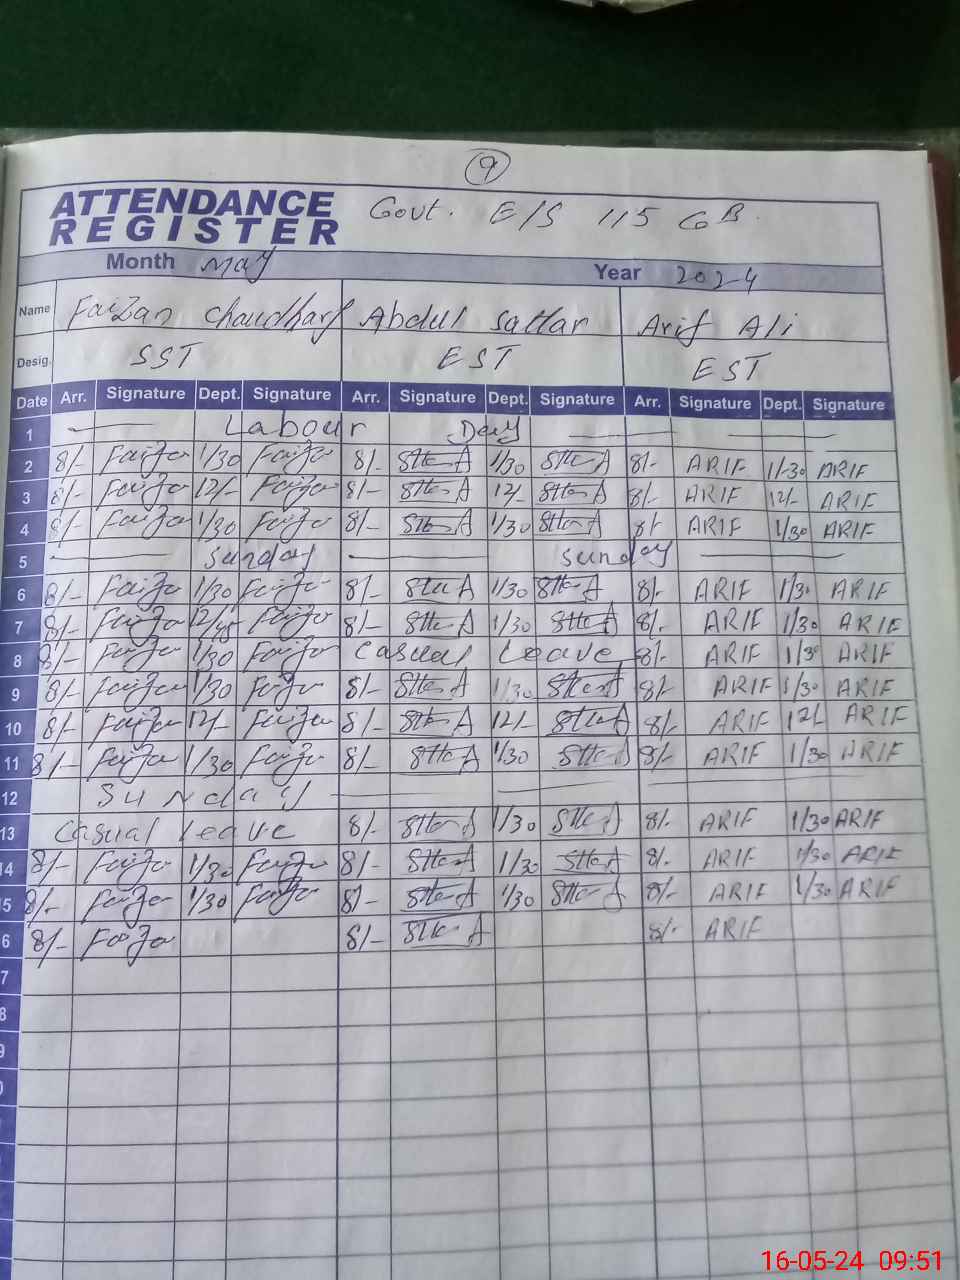 9
ATTENDANCE REGISTER Govt. E/S 115 GB.
Month May Year 2024
Name Faizan Chaudhary Abdul Sattar Arif Ali
Desig. SST EST EST
Date Arr. Signature Dept. Signature Arr. Signature Dept. Signature Arr. Signature Dept. Signature
1 Labour Day
2 8/- Faiza 1/30 Faiza 8/- 1/30 8/- ARIF 1/30 ARIF
3 8/- Faiza 12/- Faiza 8/- 12/- 8/- ARIF 12/- ARIF
4 8/- Faiza 1/30 Faiza 8/- 1/30 8/- ARIF 1/30 ARIF
5 Sunday Sunday
6 8/- Faiza 1/30 Faiza 8/- 1/30 8/- ARIF 1/30 ARIF
7 8/- Faiza 12/45 Faiza 8/- 1/30 8/- ARIF 1/30 ARIF
8 8/- Faiza 1/30 Faiza Casual Leave 8/- ARIF 1/30 ARIF
9 8/- Faiza 1/30 Faiza 8/- 1/30 8/- ARIF 1/30 ARIF
10 8/- Faiza 12/- Faiza 8/- 12/- 8/- ARIF 12/- ARIF
11 8/- Faiza 1/30 Faiza 8/- 1/30 8/- ARIF 1/30 ARIF
12 Sunday
13 Casual Leave 8/- 1/30 8/- ARIF 1/30 ARIF
14 8/- Faiza 1/30 Faiza 8/- 1/30 8/- ARIF 1/30 ARIF
5 8/- Faiza 1/30 Faiza 8/- 1/30 8/- ARIF 1/30 ARIF
6 8/- Faiza 8/- 8/- ARIF
7
8
9
0
16-05-24 09:51